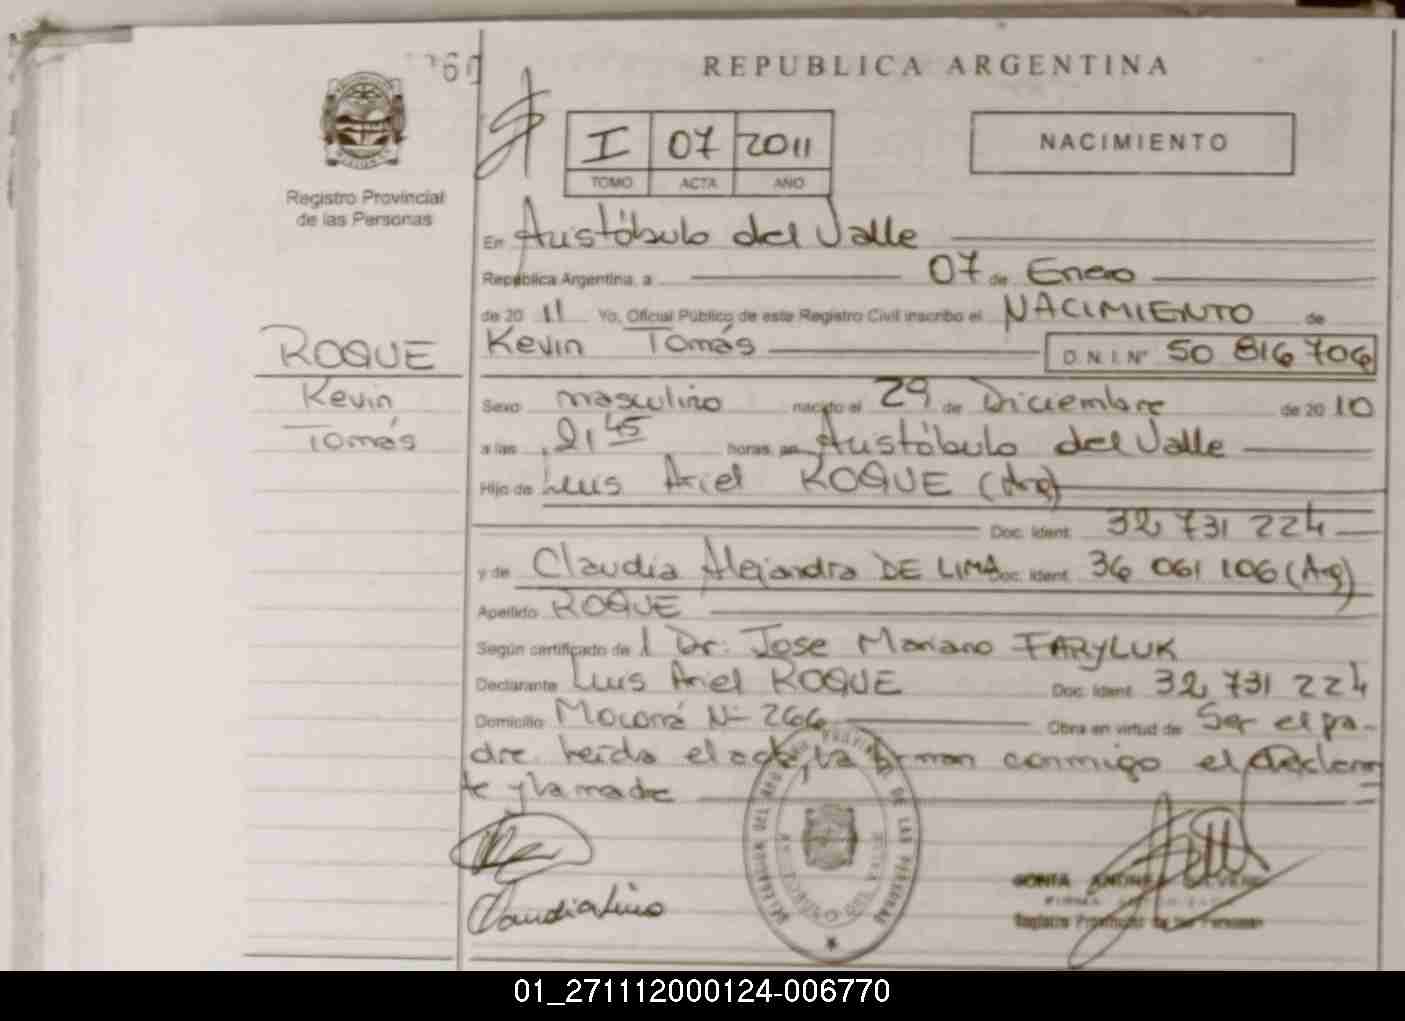 REPUBLICA ARGENTINA
Registro Provincial
de las Personas
I 07 2011
TOMO ACTA AÑO
NACIMIENTO
En Aristóbulo del Valle
República Argentina, a 07 de Enero
de 20 11 Yo, Oficial Público de este Registro Civil inscribo el NACIMIENTO de
Kevin Tomás D.N.I.N° 50 816 706
ROQUE
Kevin
Tomás
Sexo masculino nacido el 29 de Diciembre de 20 10
a las 21 45 horas en Aristóbulo del Valle
Hijo de Luis Ariel ROQUE (Arg)
Doc. Ident. 32 731 224
y de Claudia Alejandra DE LIMA Doc. Ident. 36 061 106 (Arg)
Apellido ROQUE
Según certificado de l Dr. Jose Mariano FARYLUK
Declarante Luis Ariel ROQUE Doc. Ident. 32 731 224
Domicilio Moconá N° 266 Obra en virtud de Ser el pa-
dre leída el acta, la firman conmigo el declaran
te y la madre
Registro Provincial de las Personas
01_271112000124-006770